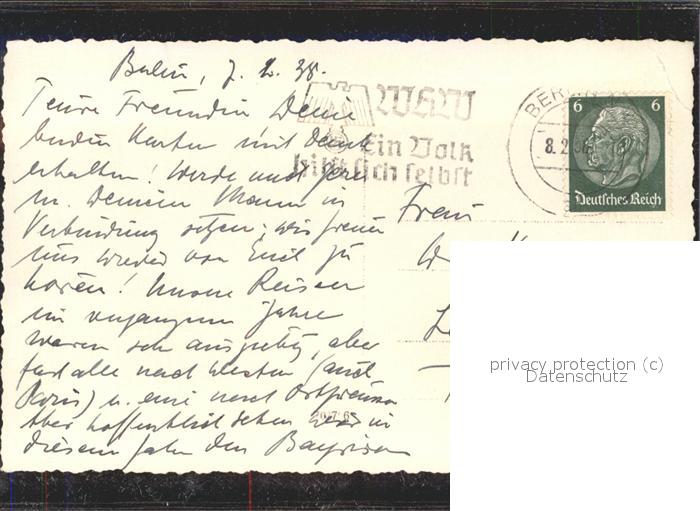 Berlin, 7. 2. 38.
Teure Freundin Deine
beiden Karten mit Dank
erhalten! Werde mich gern
m. Deinem Mann in
Verbindung setzen; wir freuen
uns wieder von Euch zu
hören! Unsere Reisen
im vergangenen Jahre
waren sehr ausgiebig, aber
fast alle nach Westen (auch
Paris) u. eine nach Ostpreussen
Aber hoffentlich sehen wir in
diesem Jahr den Bayrischen
WHW
Ein Volk
hilft sich selbst
BERLIN
8.2.38
6 6
Deutsches Reich
Frau
privacy protection (c)
Datenschutz